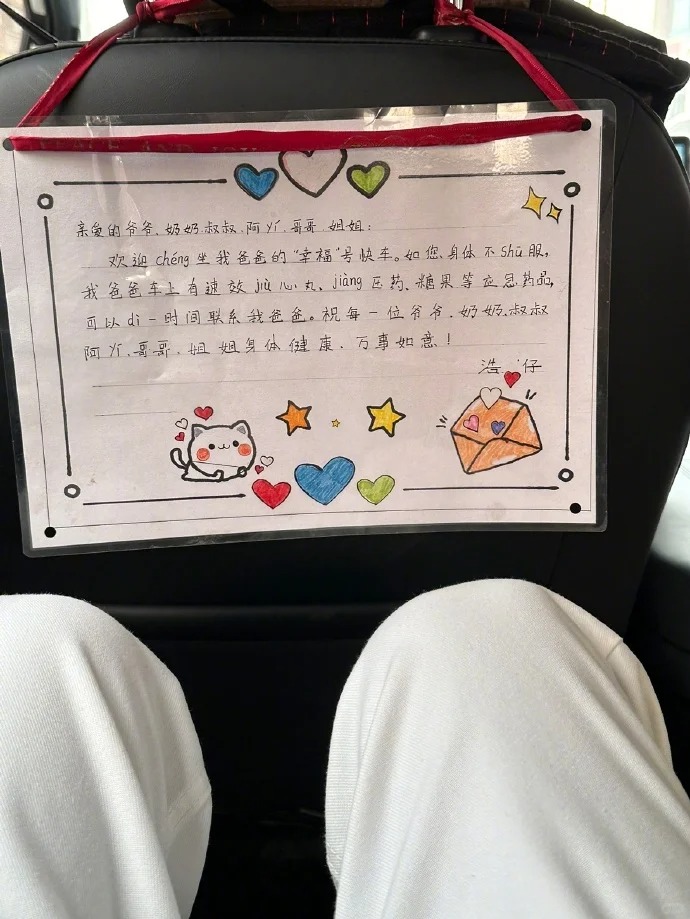 亲爱的爷爷、奶奶、叔叔、阿丫、哥哥、姐姐：
欢迎chéng坐我爸爸的“幸福”号快车。如您身体不Shū服,
我爸爸车上有速效jiù心丸、jiàng压药、糖果等应急药品,
可以dì一时间联系我爸爸。祝每一位爷爷、奶奶、叔叔
阿丫、哥哥、姐姐身体健康、万事如意！
浩 仔